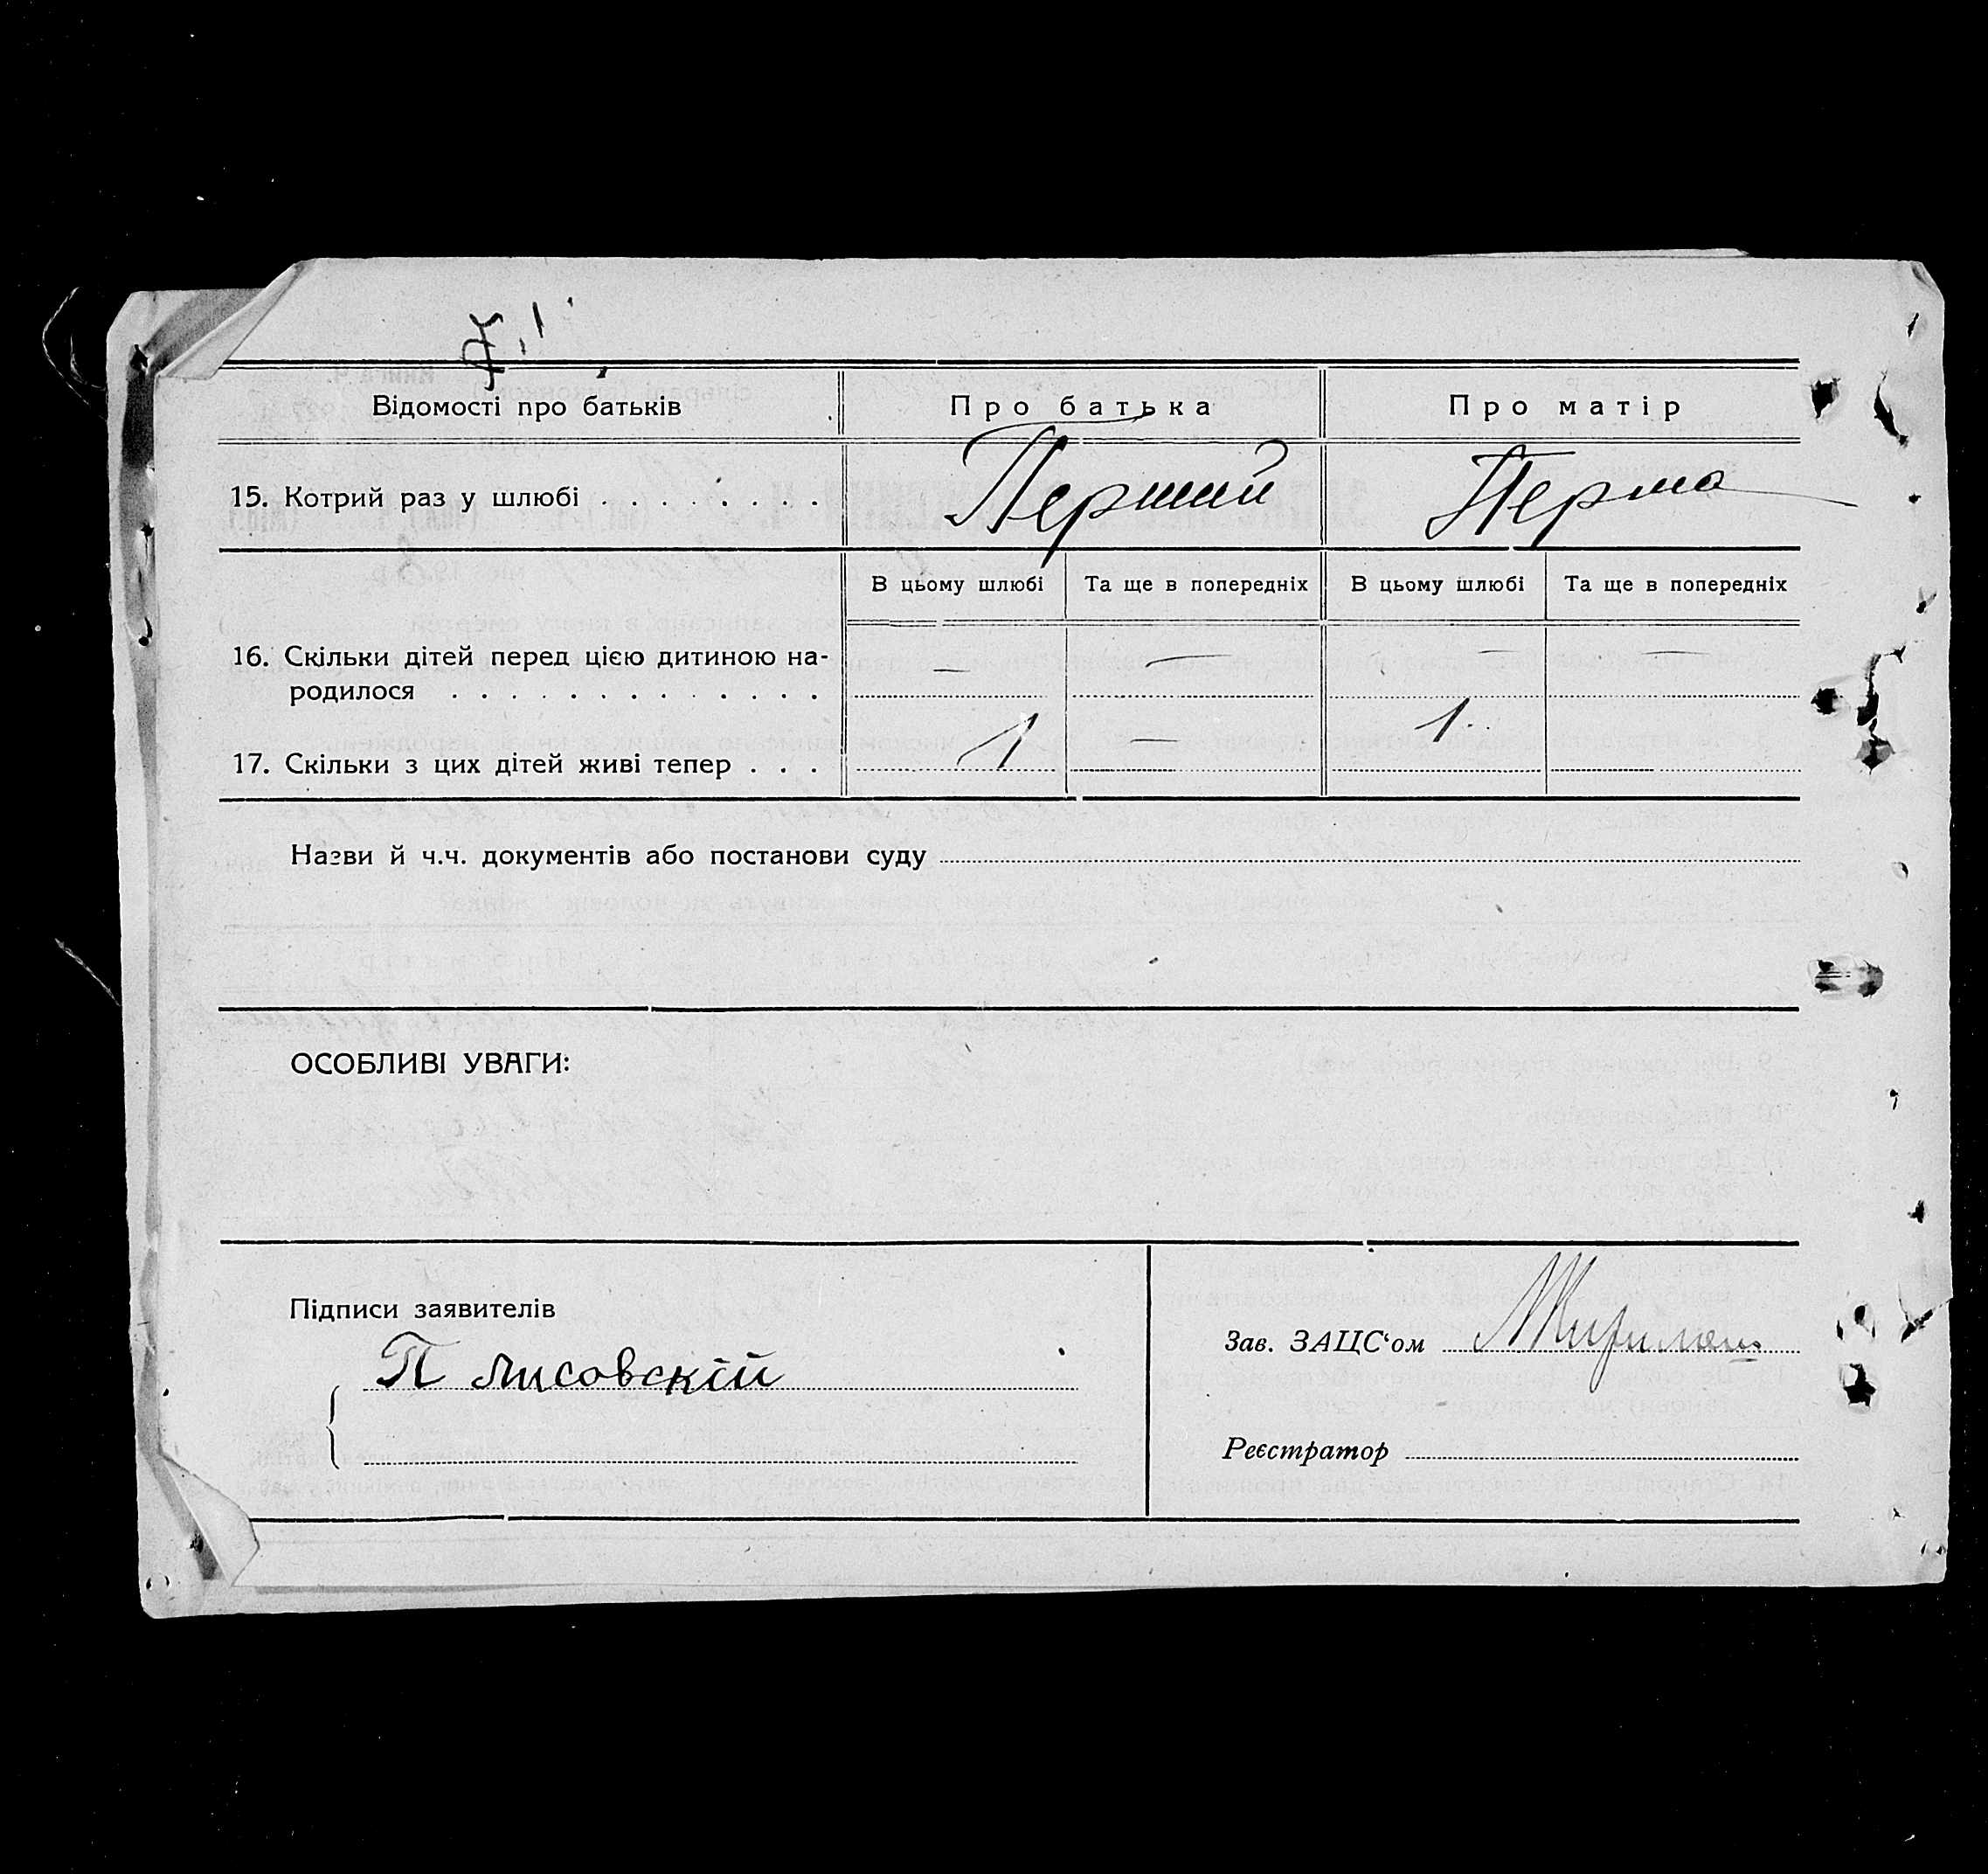 Відомості про батьків Про батька Про матір
15. Котрий раз у шлюбі . . . . . . . . Перший Перша
В цьому шлюбі Та ще в попередніх В цьому шлюбі Та ще в попередніх
16. Скільки дітей перед цією дитиною на- — — — —
родилося . . . . . . . . . . . . .
17. Скільки з цих дітей живі тепер . . . 1 — 1
Назви й ч.ч. документів або постанови суду
ОСОБЛИВІ УВАГИ:
Підписи заявителів
Зав. ЗАЦС‘ом
П Лисовскій
Реєстратор